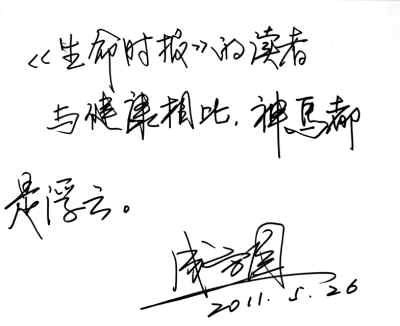 《生命时报》的读者
与健康相比,神马都
是浮云。
成方圆
2011.5.26